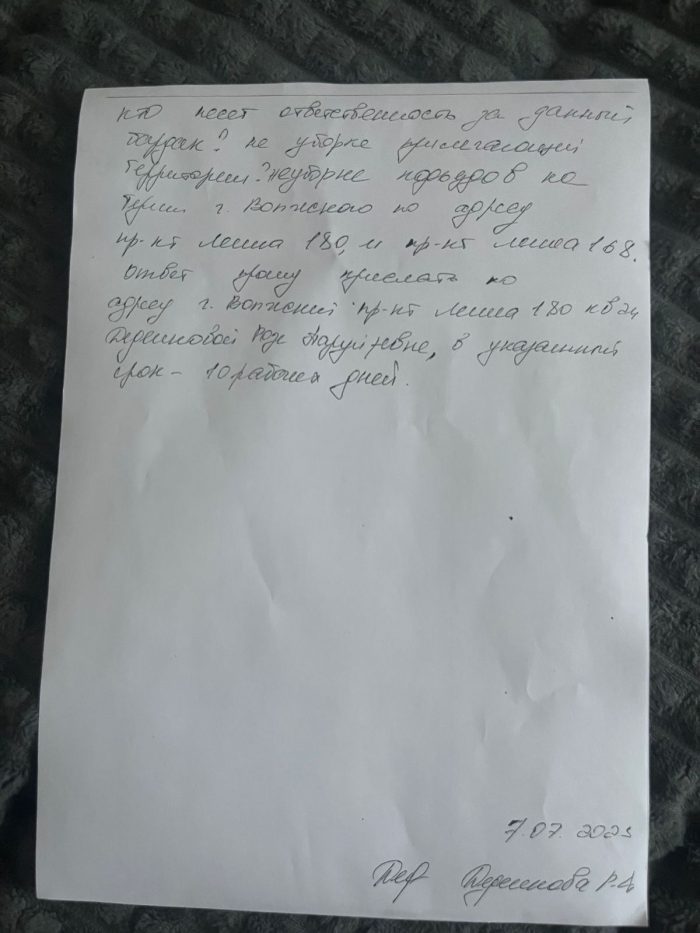 кто несет ответственность за данный
бардак? не уборке прилегающий
территории? неуборке подъездов на
г. Волжского по адресу
пр-кт Ленина 180, и пр-кт Ленина 168.
ответ прошу прислать по
адресу г. Волжский пр-кт Ленина 180 кв
в указанный
срок - 10 рабочих дней.
7.07.2023